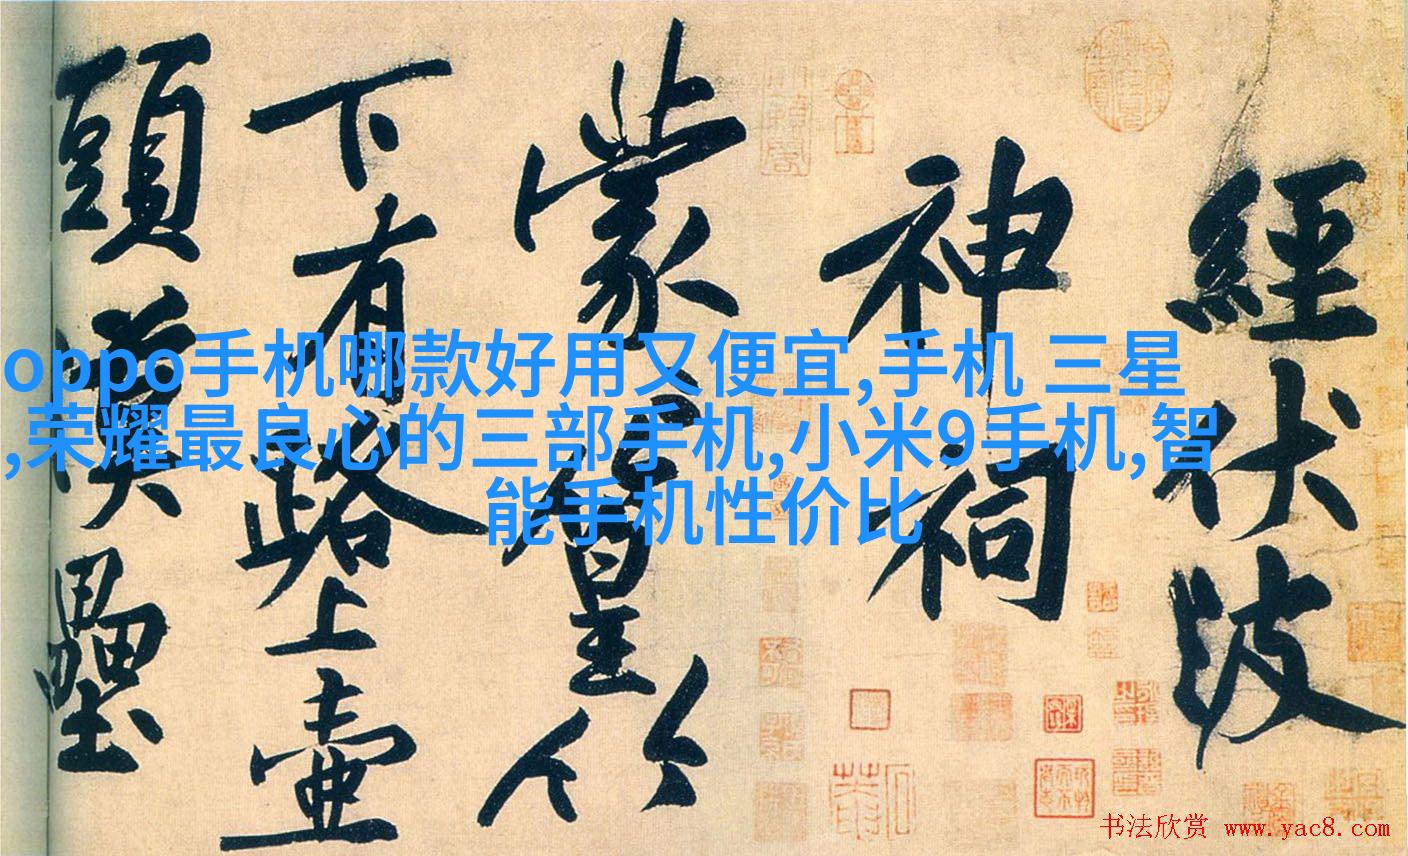 經伏波
神祠
蒙篁竹
下有路上壺
頭漢壘
oppo手机哪款好用又便宜,手机 三星
,荣耀最良心的三部手机,小米9手机,智
能手机性价比
书法欣赏 www.yac8.com